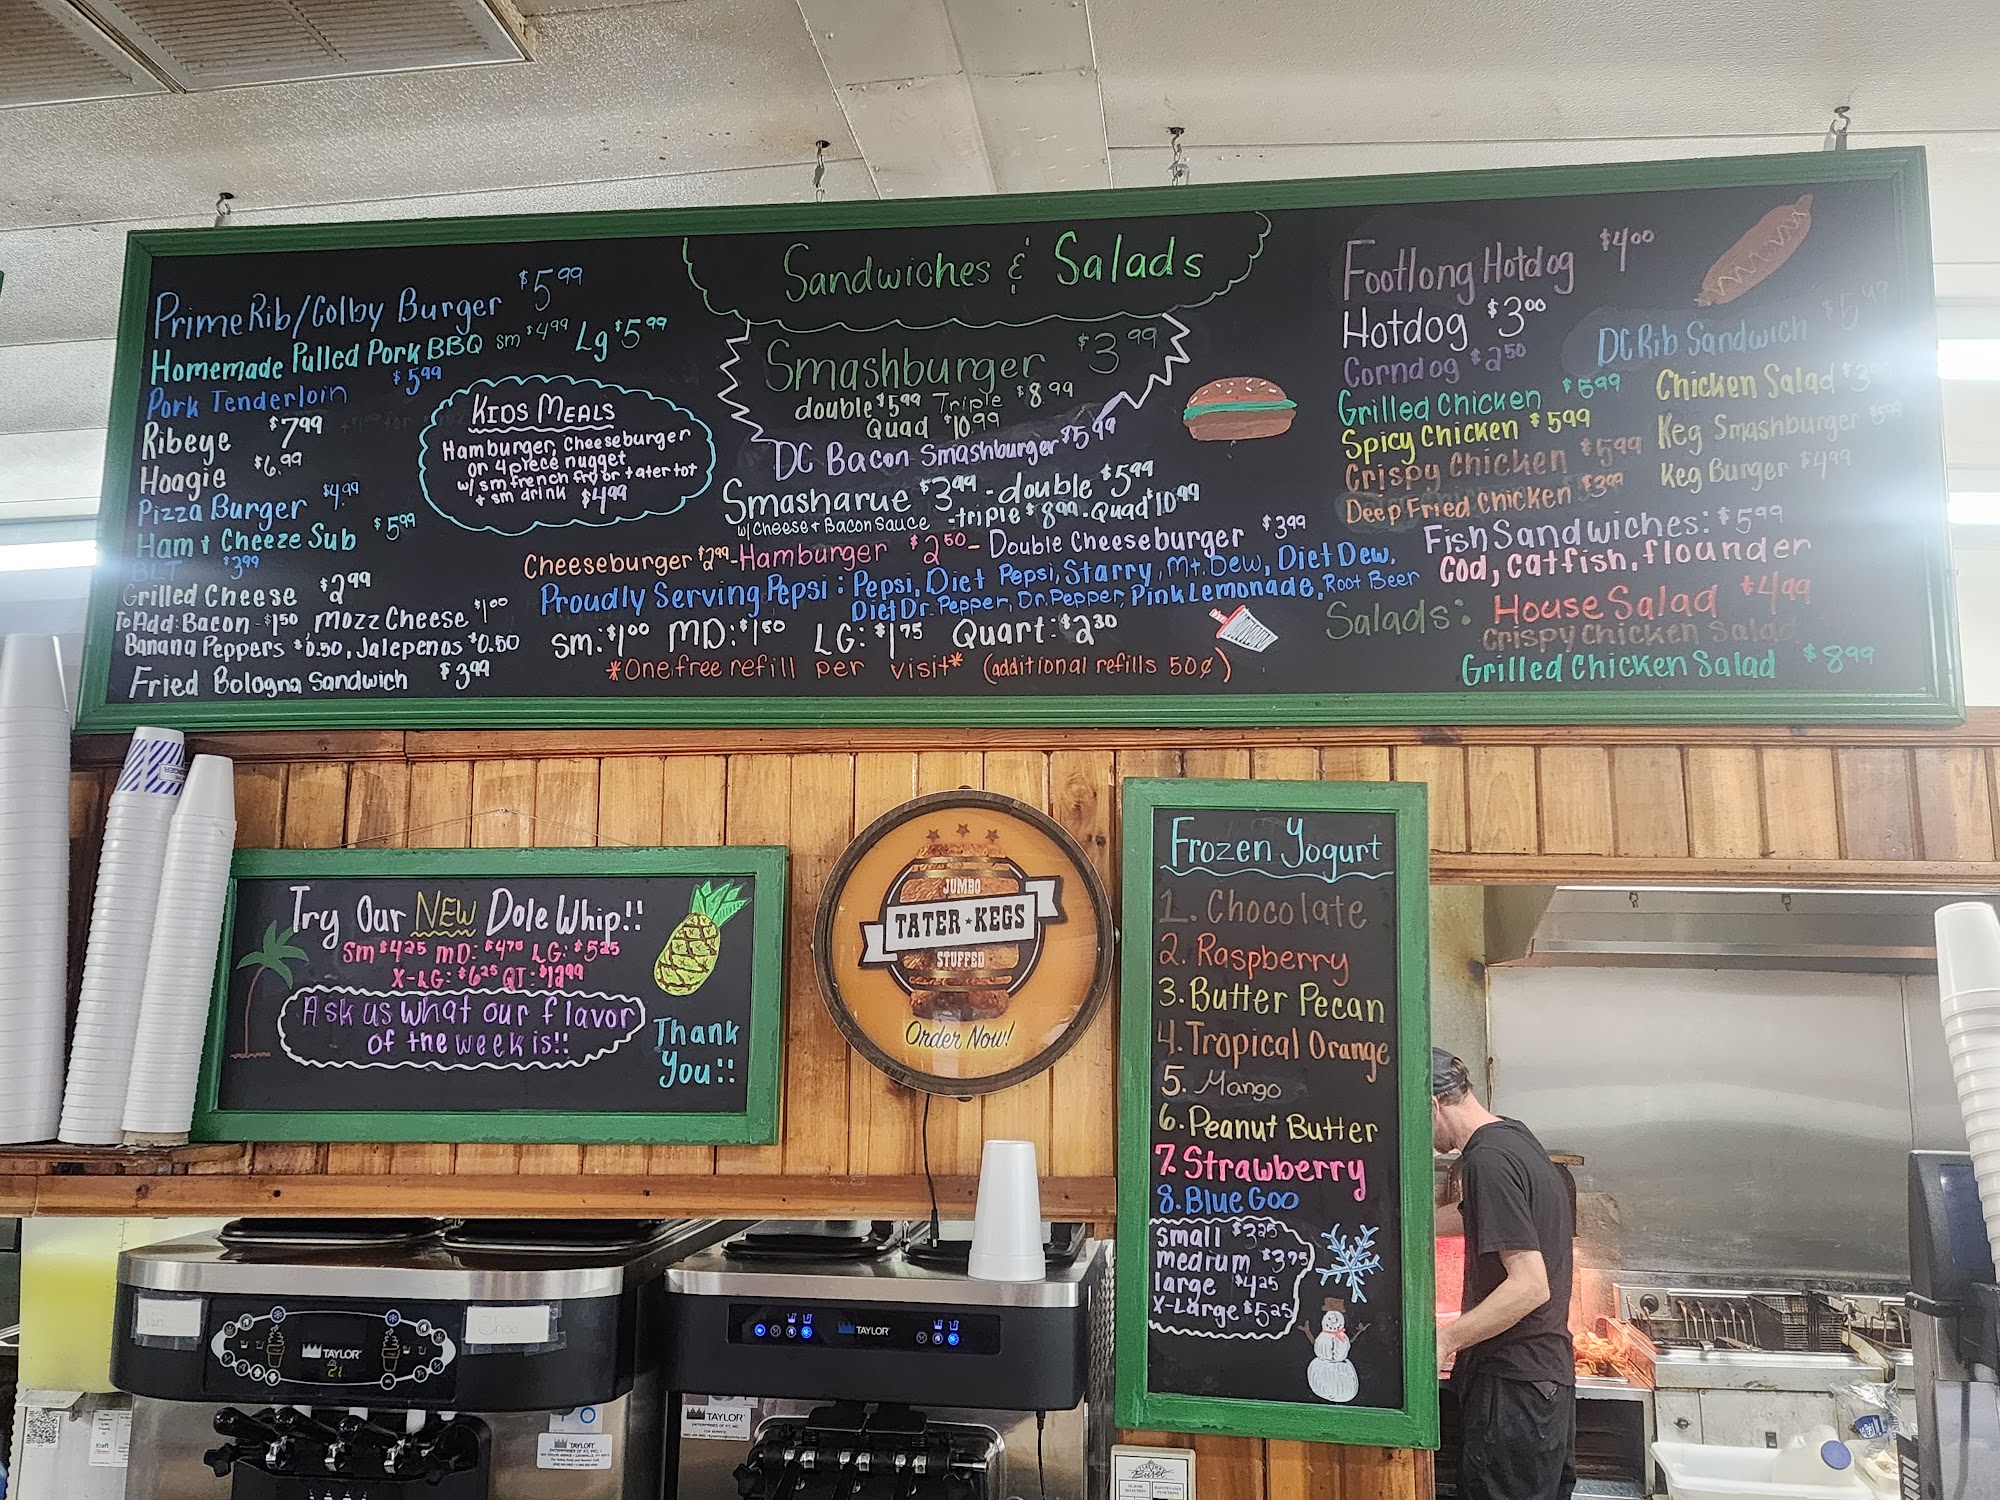 Sandwiches & Salads
Prime Rib/Colby Burger $5.99
Homemade Pulled Pork BBQ sm $4.99 Lg $5.99
Pork Tenderloin $5.99
Ribeye $7.99
Hoagie $6.99
Pizza Burger $4.99
Ham + Cheeze Sub $5.99
BLT $3.99
Grilled Cheese $2.99
To Add: Bacon - $1.50, Mozz Cheese $1.00
Banana Peppers $0.50, Jalepenos $0.50
Fried Bologna Sandwich $3.99
KIDS MEALS
Hamburger, Cheeseburger
or 4 piece nugget
w/ sm french fry or tater tot
+ sm drink $4.99
Smashburger $3.99
double $5.99 Triple $8.99
Quad $10.99
DC Bacon Smashburger $5.99
Smasharue $3.99 - double $5.99
w/ Cheese + Bacon Sauce - triple $8.99 - Quad $10.99
Cheeseburger $2.99 - Hamburger $2.50 - Double Cheeseburger $3.99
Proudly Serving Pepsi: Pepsi, Diet Pepsi, Starry, Mt. Dew, Diet Dew,
Diet Dr. Pepper, Dr. Pepper, Pink Lemonade, Root Beer
Sm: $1.00 MD: $1.50 LG: $1.75 Quart: $2.30
*One free refill per visit* (additional refills 50¢)
Footlong Hotdog $4.00
Hotdog $3.00
Corndog $2.50
Grilled Chicken $5.99
Spicy Chicken $5.99
Crispy Chicken $5.99
Deep Fried Chicken $3.99
DC Rib Sandwich
Chicken Salad
Keg Smashburger
Keg Burger $4.99
Fish Sandwiches: $5.99
Cod, Catfish, flounder
Salads: House Salad $4.99
Crispy Chicken Salad
Grilled Chicken Salad $8.99
Try Our NEW Dole Whip!!
Sm $4.25 MD: $4.75 LG: $5.25
X-LG: $6.25 QT: $12.99
Ask us what our flavor
of the week is!!
Thank
You!!
JUMBO
TATER KEGS
STUFFED
Order Now!
Frozen Yogurt
1. Chocolate
2. Raspberry
3. Butter Pecan
4. Tropical Orange
5. Mango
6. Peanut Butter
7. Strawberry
8. Blue Goo
small $3.25
medium $3.75
large $4.25
X-Large $5.25
Van
Choc
TAYLOR
21
TAYLOR
TAYLOR
TAYLOR
Kraft